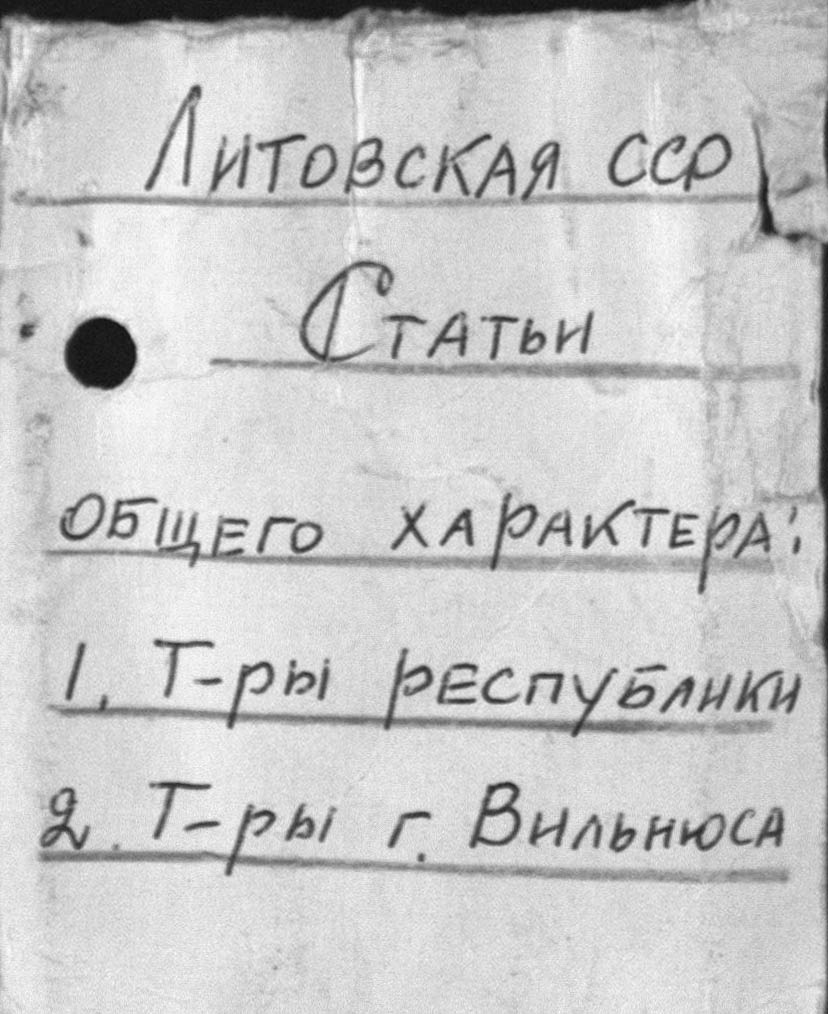 Литовская ССР
Статьи
общего характера:
1. Т-ры республики
2. Т-ры г. Вильнюса